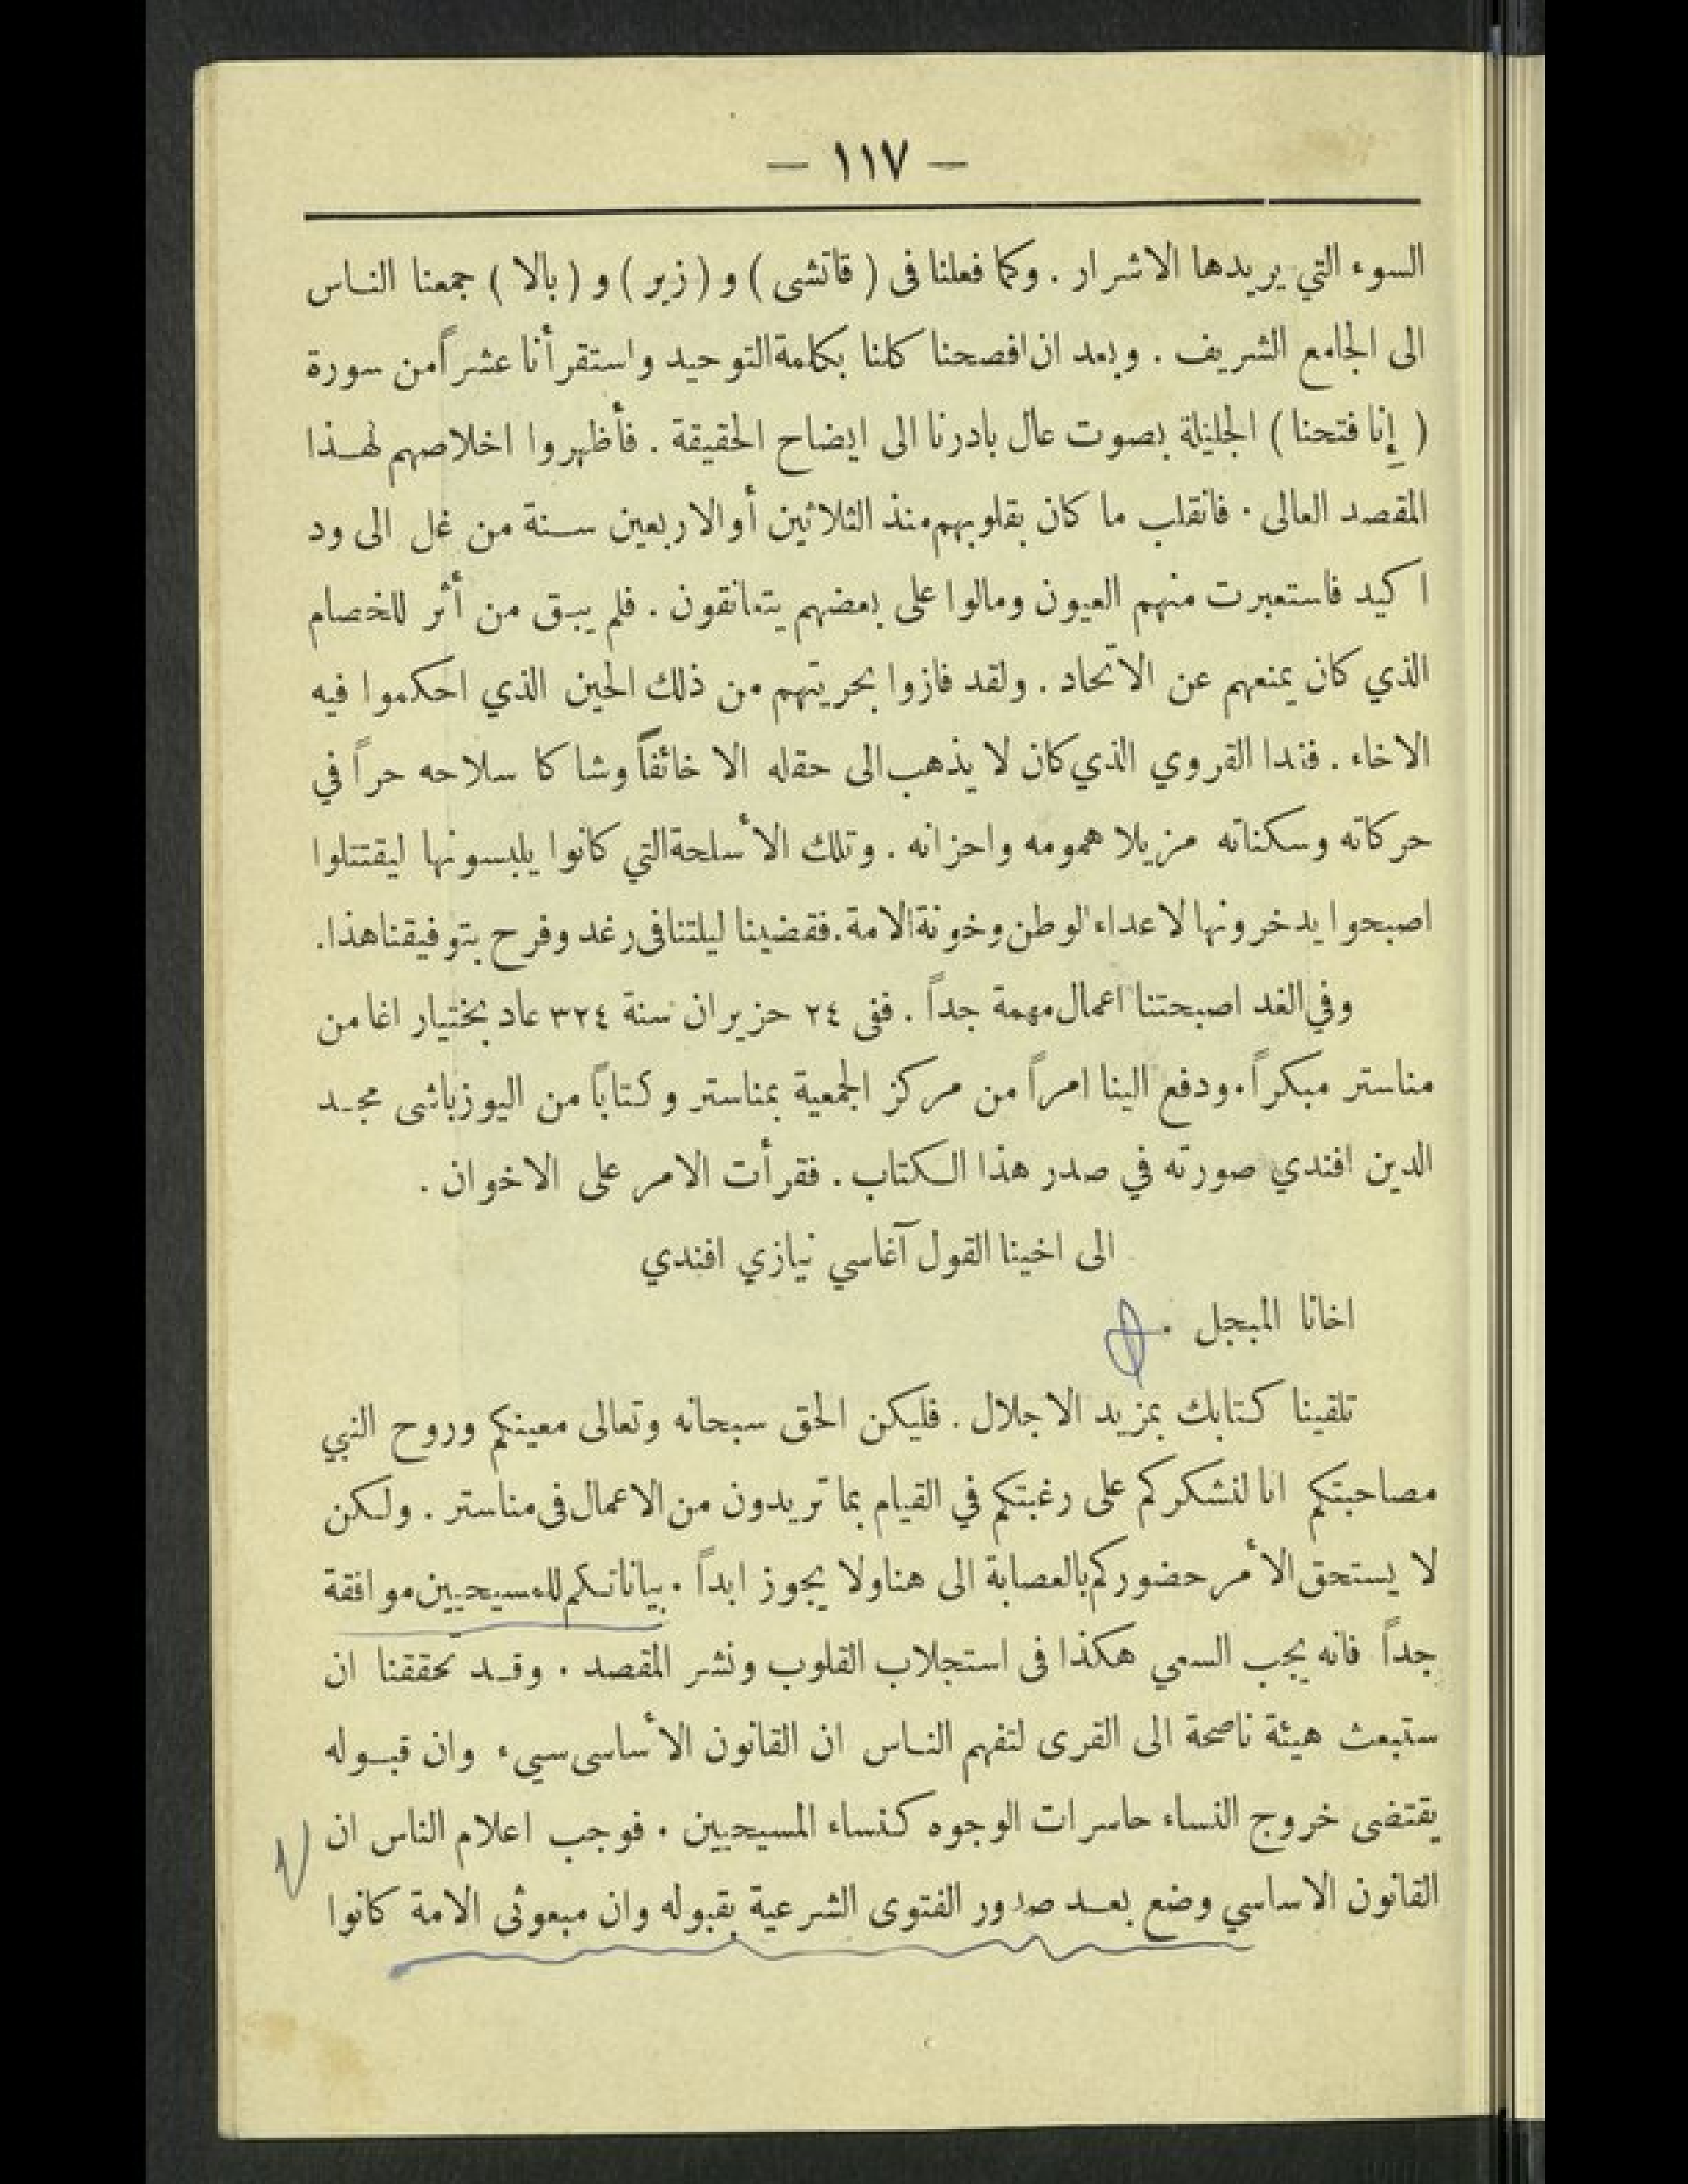 — ١١٧ —
السوء التي يريدها الاشرار . وكما فعلنا فى ( قاتشى ) و ( زبر ) و ( بالا ) جمعنا الناس
الى الجامع الشريف . وبعد ان افصحنا كلنا بكلمة التوحيد واستقرأنا عشراً من سورة
( إنا فتحنا ) الجليلة بصوت عال بادرنا الى ايضاح الحقيقة . فأظهروا اخلاصهم لهذا
المقصد العالى . فانقلب ما كان بقلوبهم منذ الثلاثين أو الاربعين سنة من غل الى ود
اكيد فاستعبرت منهم العيون ومالوا على بعضهم يتعانقون . فلم يبق من أثر للخصام
الذي كان يمنعهم عن الاتحاد . ولقد فازوا بحريتهم من ذلك الحين الذي احكموا فيه
الاخاء . فغدا القروي الذي كان لا يذهب الى حقله الا خائفاً وشاكا سلاحه حراً في
حركاته وسكناته مزيلا همومه واحزانه . وتلك الأسلحة التي كانوا يلبسونها ليقتتلوا
اصبحوا يدخرونها لاعداء الوطن وخونة الامة . فقضينا ليلتنا فى رغد وفرح بتوفيقنا هذا .
وفي الغد اصبحتنا اعمال مهمة جداً . ففى ٢٤ حزيران سنة ٣٢٤ عاد بختيار اغا من
مناستر مبكراً . ودفع الينا امراً من مركز الجمعية بمناستر وكتاباً من اليوزباشى مجد
الدين افندي صورته في صدر هذا الكتاب . فقرأت الامر على الاخوان .
الى اخينا القول آغاسي نيازي افندي
اخانا المبجل .
تلقينا كتابك بمزيد الاجلال . فليكن الحق سبحانه وتعالى معينكم وروح النبي
مصاحبتكم انا لنشكركم على رغبتكم في القيام بما تريدون من الاعمال فى مناستر . ولكن
لا يستحق الأمر حضوركم بالعصابة الى هنا ولا يجوز ابداً . بياناتكم للمسيحيين موافقة
جداً فانه يجب السعي هكذا فى استجلاب القلوب ونشر المقصد . وقد تحققنا ان
ستبعث هيئة ناصحة الى القرى لتفهم الناس ان القانون الأساسى سيء وان قبوله
يقتضى خروج النساء حاسرات الوجوه كنساء المسيحيين . فوجب اعلام الناس ان
القانون الاساسي وضع بعد صدور الفتوى الشرعية بقبوله وان مبعوثى الامة كانوا